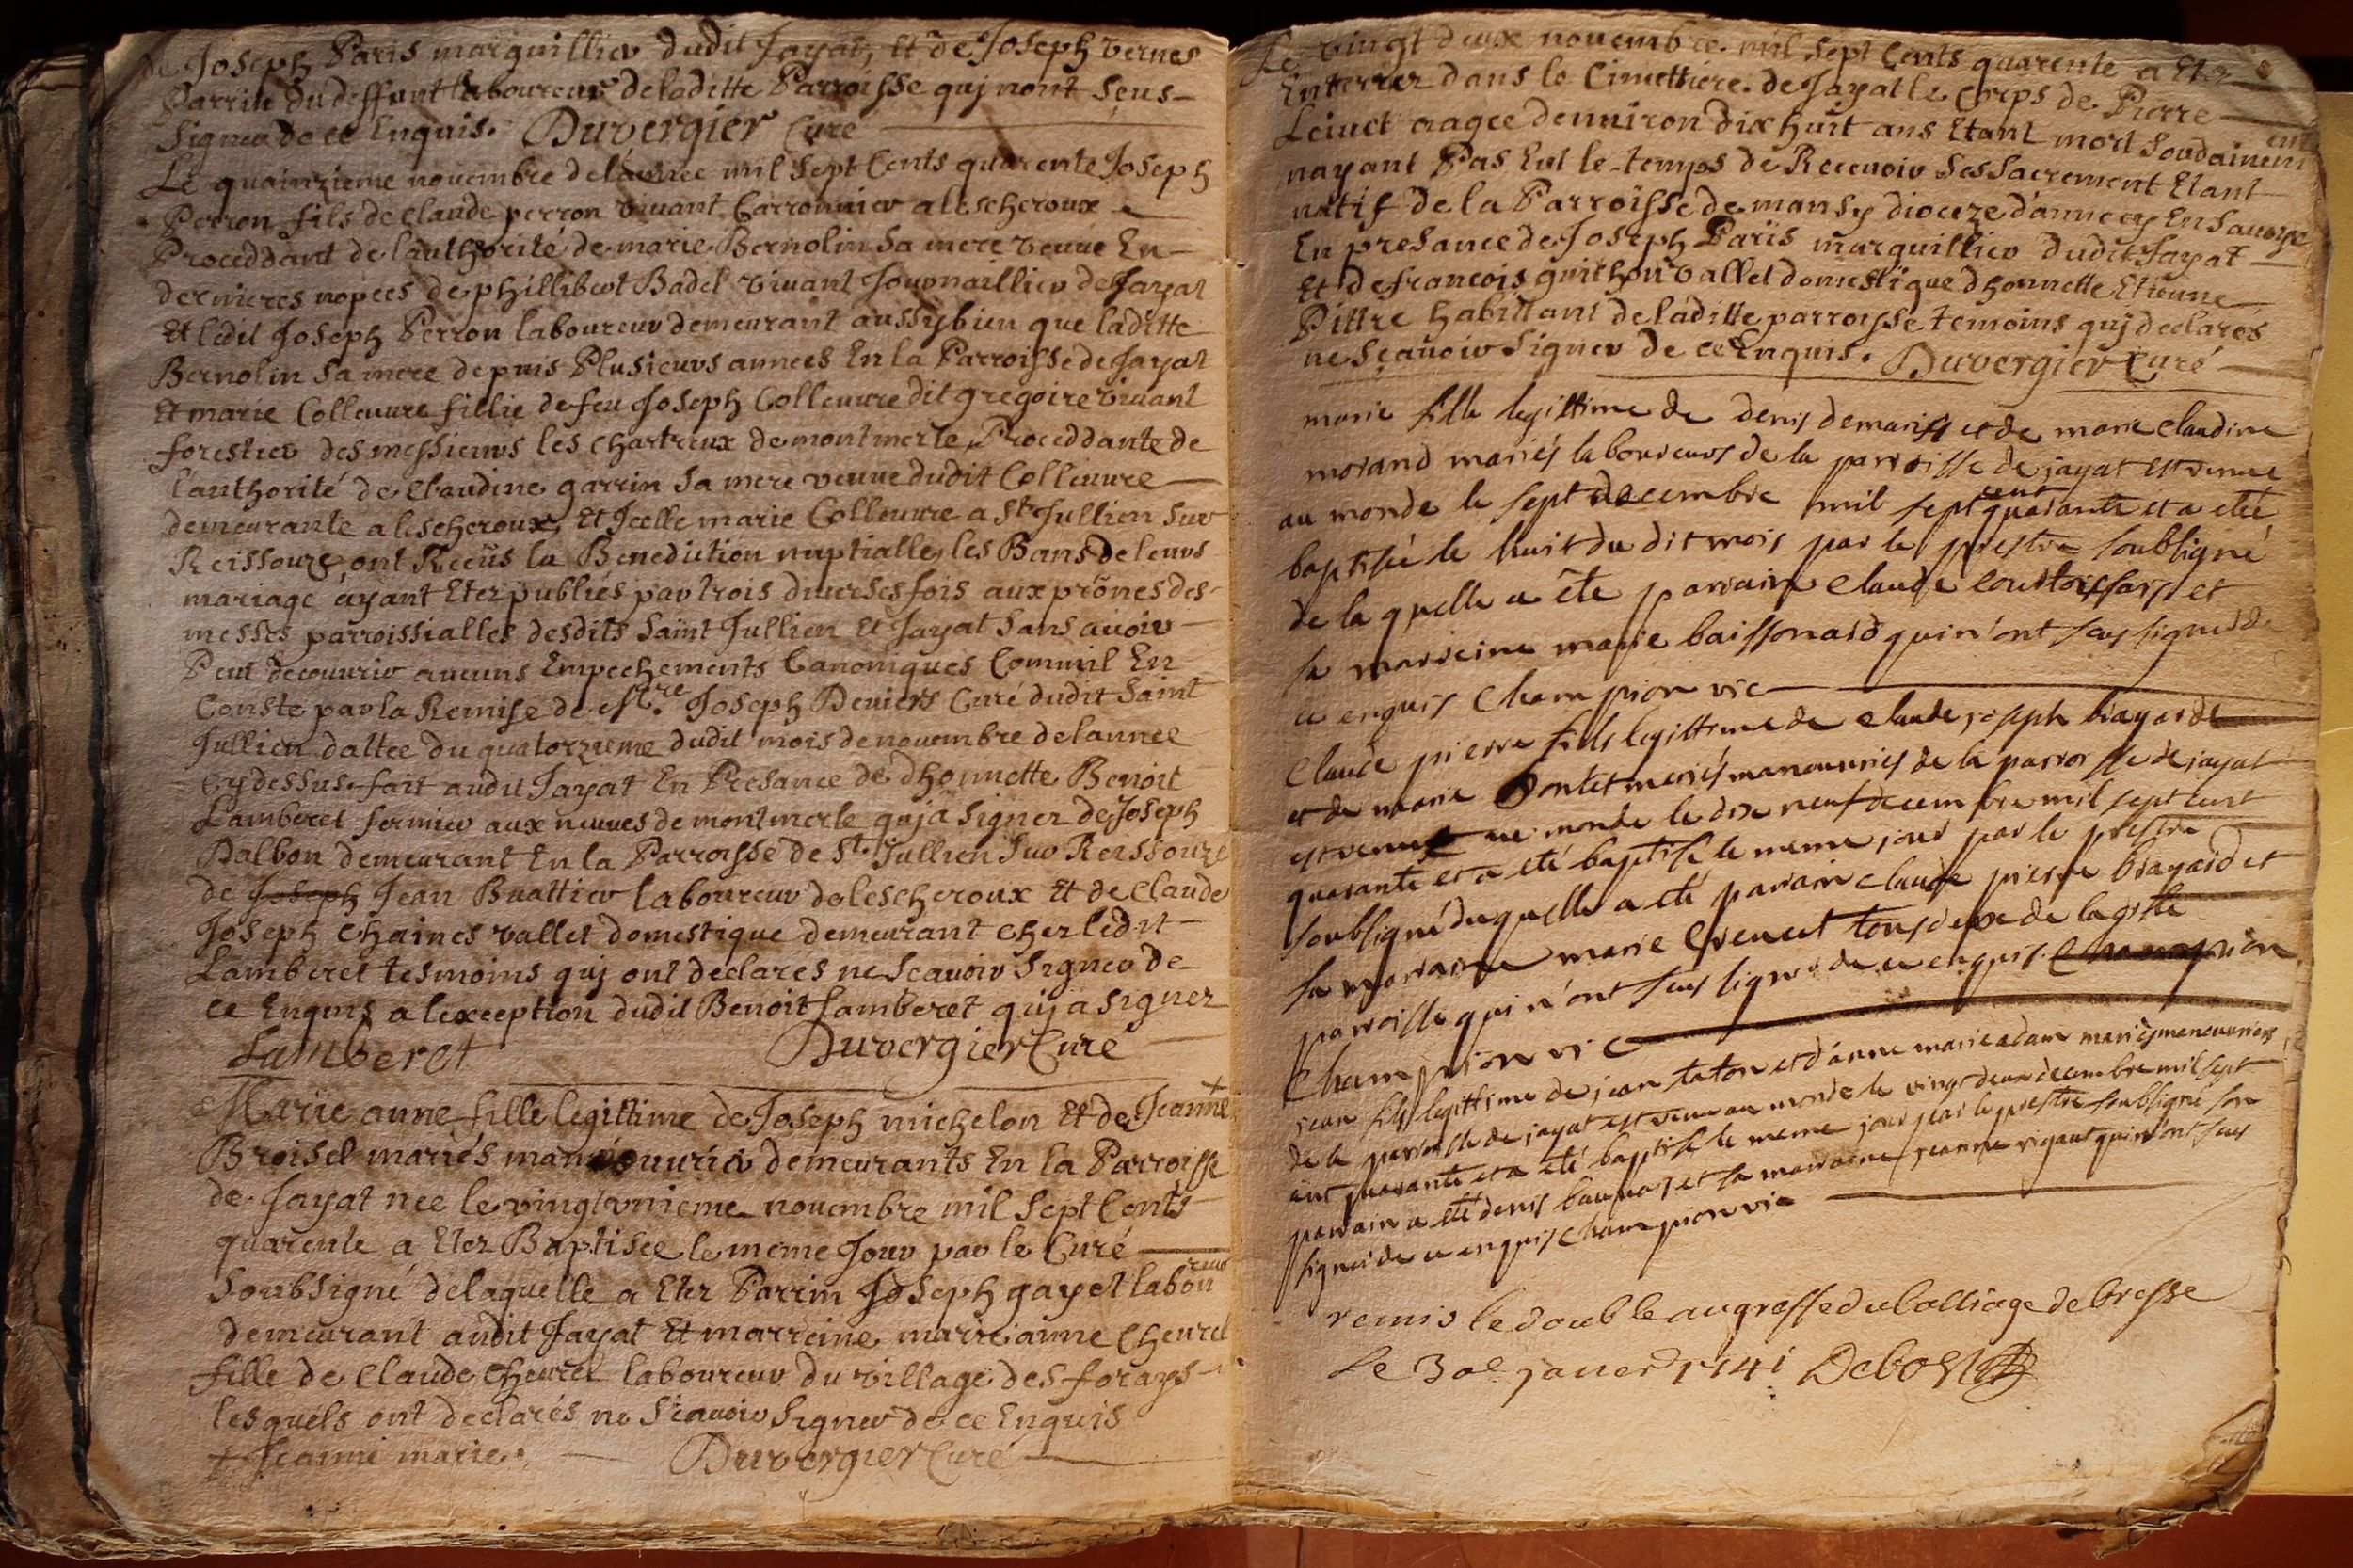 de Joseph Paris marguillier dudit Jayat, et de Joseph vernes
Parrin du deffunt laboureur de laditte Parroisse quj nont Sçus
Signer de ce Enquis. Duvergier Curé
Le quainzieme novembre de lannee mil Sept Cents quarente Joseph
Perron fils de Claude perron vivant Carronnier a lescheroux
Proceddant de l'authorité de marie Bernolin Sa mere veuve En
dernieres nopces de phillibert Badel vivant Journaillier de Jayat
Et ledit Joseph Perron laboureur demeurant aussy bien que laditte
Bernolin Sa mere depuis Plusieurs annees En la Parroisse de Jayat
Et marie Colleuure fillie de feu Joseph Colleuure dit gregoire vivant
forestier des messieurs les chartreux de montmerle, Proceddante de
l'authorité de Claudine garrin Sa mere veuve dudit Colleuure
demeurante a lescheroux, Et Jcelle marie Colleuure a St Jullien Sur
Reissouze, ont Reçûs la Benediction nuptialle, les Bans de leurs
mariage ayant Etez publiés par trois diverses fois aux prônes des
messes parroissialles desdits Saint Jullien Et Jayat Sans avoir
Peut decouvrir aucuns Empechements Canoniques Comm'il En
Conste par la Remise de Mre Joseph Deniers Curé dudit Saint
Jullien dattee du quatorzieme dudit mois de novembre de lannee
Cy dessus. fait audit Jayat En Presance de d'honnette Benoit
Lamberet fermier aux neuves de montmerle quj a Signer de Joseph
Dalbon demeurant En la Parroisse de St. Jullien Sur Reissouze
de Joseph Jean Buattier laboureur de lescheroux Et de Claude
Joseph Chaines vallet domestique demeurant cher ledit
Lamberet tesmoins quj ont declarés ne Scavoir Signer de
ce Enquis a lexception dudit Benoit Lamberet quj a Signer
Lamberet Duvergier Curé
Marie anne fille legittime de Joseph michelon Et de Jeanne +
Broisel mariés manouvrier demeurants En la Parroisse
de Jayat nee le vingtunieme novembre mil Sept Cents
quarente a Etez Baptisee le meme Jour par le Curé
Soubsigné de laquelle a Etez Parrin Joseph gayet laboureur
demeurant audit Jayat Et marreine marie anne Cheurel
fille de Claude Cheurel laboureur du village des forays
lesquels ont declarés ne Sçavoir Signer de ce Enquis
+ Jeanne marie. Duvergier Curé
Le vingt deux novembre mil Sept Cents quarente a Etez
Enterrer dans le Cimettiere de Jayat le Corps de Pierre
agee denniron dix huit ans Etant mort Soudainement
nayant Pas Eut le temps de Recevoir Ses Sacrement Etant
natif de la Parroisse de diocèze d'annecy En Savoye
En presance de Joseph Paris marguillier dudit Jayat
Et de francois guichon vallet domestique d'honnette Etienne
Pittre habittant de laditte parroisse temoins quj declarés
ne Sçavoir Signer de ce Enquis. Duvergier Curé
marie fille legittime de denis et de marie claudine
morand mariés laboureurs de la parroisse de jayat est venue
au monde le sept decembre mil sept cent quarante et a etée
baptisée le huit du dit mois par le prestre soubsigné
de la quelle a éte parrain claude et
sa marreine marie qui n'ont sçus signer de
ce enquis Champion vic
Claude pierre fils legittime de claude joseph brayard
et de marie mariés manouvriés de la parroisse de jayat
est venus au monde le dix neuf decembre mil sept cent
quarante et a eté baptisé le meme jour par le prestre
soubsigné duquelle a eté parrain claude pierre brayard et
sa marraine marie tous deux de la ditte
parroisse qui n'ont sçus signer de ce enquis. Champion
Champion vic
jean fils legittime de jean taton et d'anne marie adam mariés manouvriers
de la parroisse de jayat est venu au monde le vingt deux decembre mil sept
cent quarante et a eté baptisé le meme jour par le prestre soubsigné son
parrain a eté denis et sa marraine jeanne rigaut qui n'ont sçus
signer de ce enquis Champion vic
remis le double au greffe du balliage de bresse
le 30e janer 1741 Debost